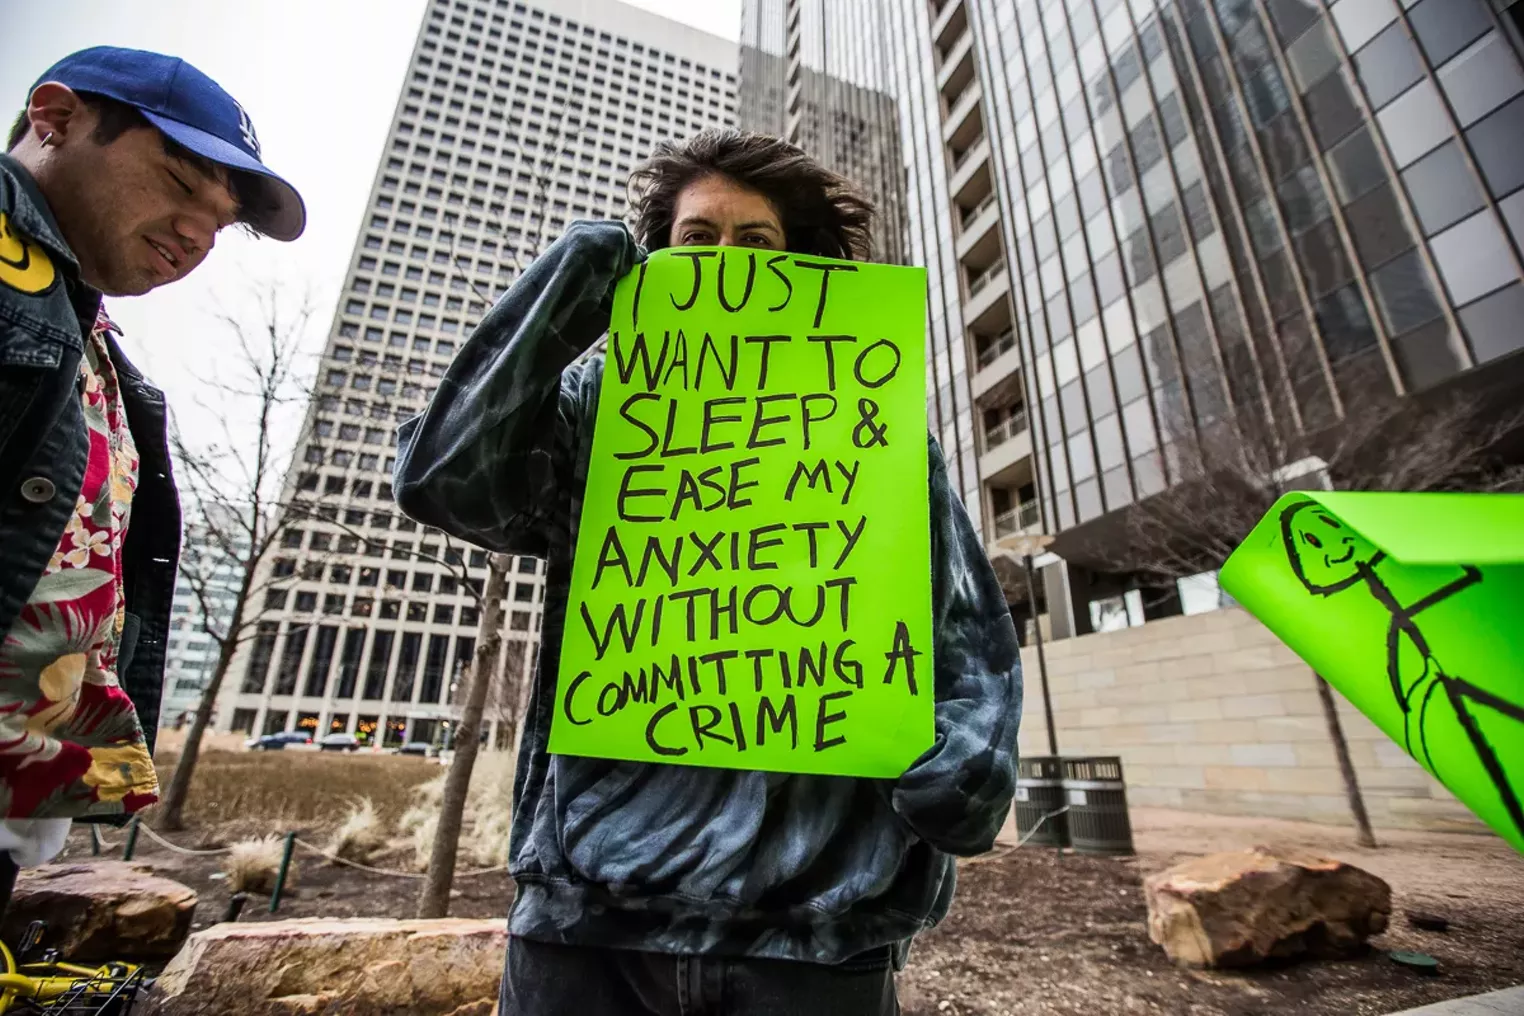 LA
I JUST
WANT TO
SLEEP &
EASE MY
ANXIETY
WITHOUT
COMMITTING A
CRIME